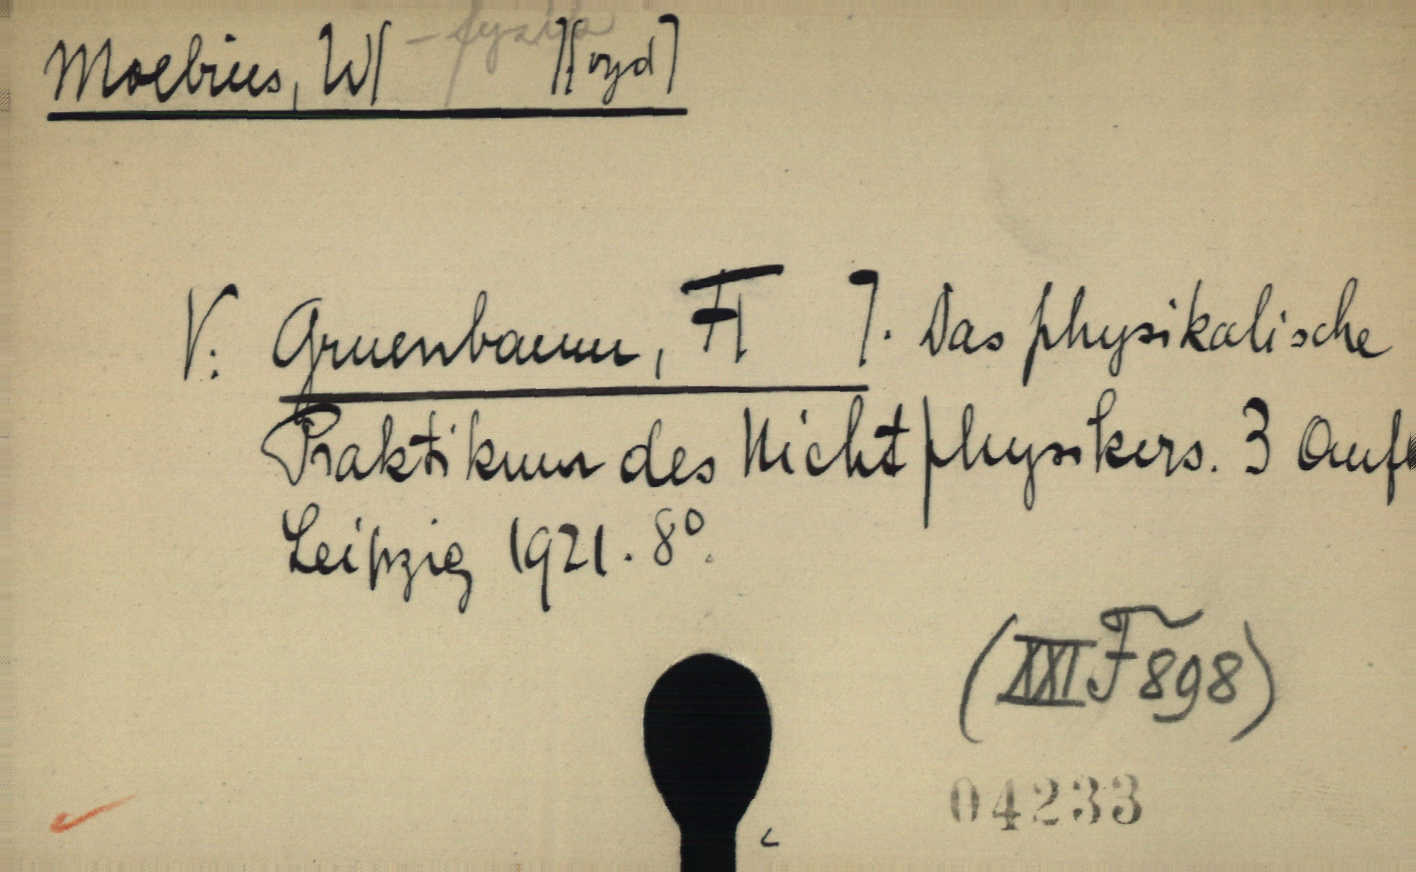 Moebius, W[ – fyzika ][vyd]
V: Gruenbaum, F[ ]. Das physikalische
Praktikum des Nichtphysikers. 3 Aufl
Leipzig 1921. 8°.
(XXI F 898)
04233